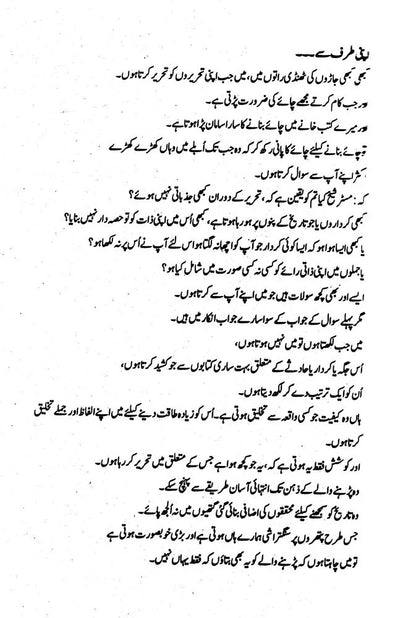 اپنی طرف سے ۔۔۔۔
کبھی کبھی جاڑوں کی ٹھنڈی راتوں میں، میں جب اپنی تحریروں کو تحریر کرتا ہوں۔
اور جب کام کرتے مجھے چائے کی ضرورت پڑتی ہے۔
اور میرے کتب خانے میں چائے بنانے کا سارا سامان پڑا ہوتا ہے۔
تو چائے بنانے کیلئے چائے کا پانی رکھ کر کہ وہ جب تک اُبلے میں وہاں کھڑے کھڑے
اکثر اپنے آپ سے سوال کرتا ہوں۔
کہ : مسٹر شیخ کیا تم کو یقین ہے کہ، تحریر کے دوران کبھی جذباتی نہیں ہوئے؟
کبھی کرداروں یا جو تاریخ کے پنوں پر ہو رہا ہوتا ہے، کبھی اُس میں اپنی ذات کو تو حصہ دار نہیں بنایا؟
یا کبھی ایسا ہوا ہو کہ ایسا کوئی کردار جو آپ کو اچھا نہ لگتا ہو اس لئے آپ نے اُس پر نہ لکھا ہو؟
یا جملوں میں اپنی ذاتی رائے کو کسی نہ کسی صورت میں شامل کیا ہو؟
ایسے اور بھی کچھ سوالات ہیں جو میں اپنے آپ سے کرتا ہوں۔
مگر پہلے سوال کے جواب کے سوا سارے جواب انکار میں ہیں۔
میں جب لکھتا ہوں تو میں نہیں ہوتا ہوں،
اُس جگہ یا کردار یا حادثے کے متعلق بہت ساری کتابوں سے جو کشید کرتا ہوں،
اُن کو ایک ترتیب دے کر لکھ دیتا ہوں۔
ہاں وہ کیفیت جو کسی واقعہ سے تخلیق ہوتی ہے۔ اُس کو زیادہ طاقت دینے کیلئے میں اپنے الفاظ اور جملے تخلیق
کرتا ہوں۔
اور کوشش فقط یہ ہوتی ہے کہ، یہ جو کچھ ہوا ہے جس کے متعلق میں تحریر کر رہا ہوں۔
وہ پڑھنے والے کے ذہن تک انتہائی آسان طریقے سے پہنچ سکے۔
وہ تاریخ کو سمجھنے کیلئے محققوں کی اضافی بنائی گئی گتھیوں میں نہ اُلجھ پائے۔
جس طرح پتھروں پر سنگتراشی ہمارے ہاں ہوتی ہے اور بڑی خوبصورت ہوتی ہے
تو میں چاہتا ہوں کہ پڑھنے والے کو یہ بھی بتاؤں کہ فقط یہاں نہیں۔